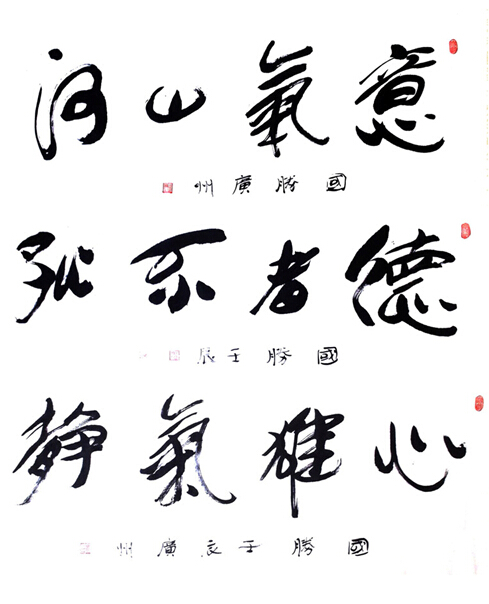 意氣山河
國勝廣州
德者不孤
國勝壬辰
心雄氣靜
國勝壬辰廣州